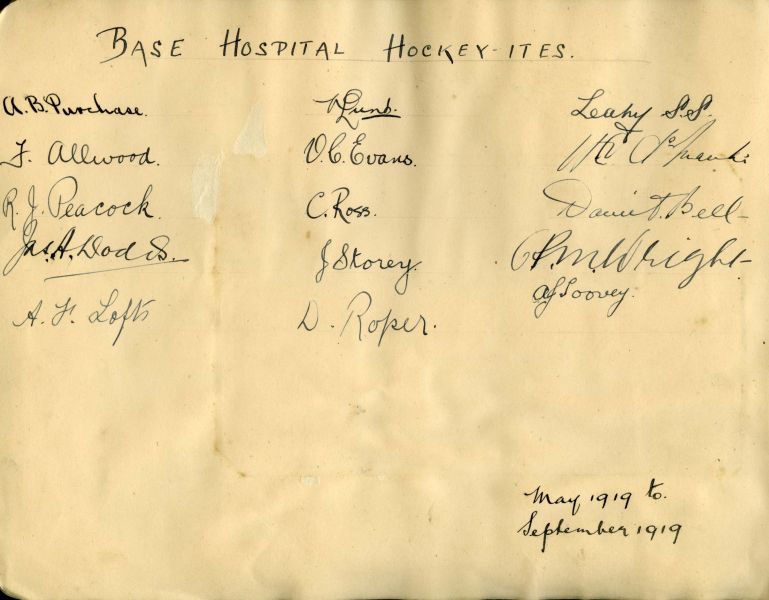 BASE HOSPITAL HOCKEY-ITES.
A. B. Purchase.
F. Allwood.
R. J. Peacock.
Jas. A. Dodds.
A. F. Lofts
Lunt.
O. C. Evans.
C. Ross.
J Storey.
D. Roper.
Leahy S.S.
David T. Bell
P. M. Wright
A J Toovey.
May 1919 to.
September 1919